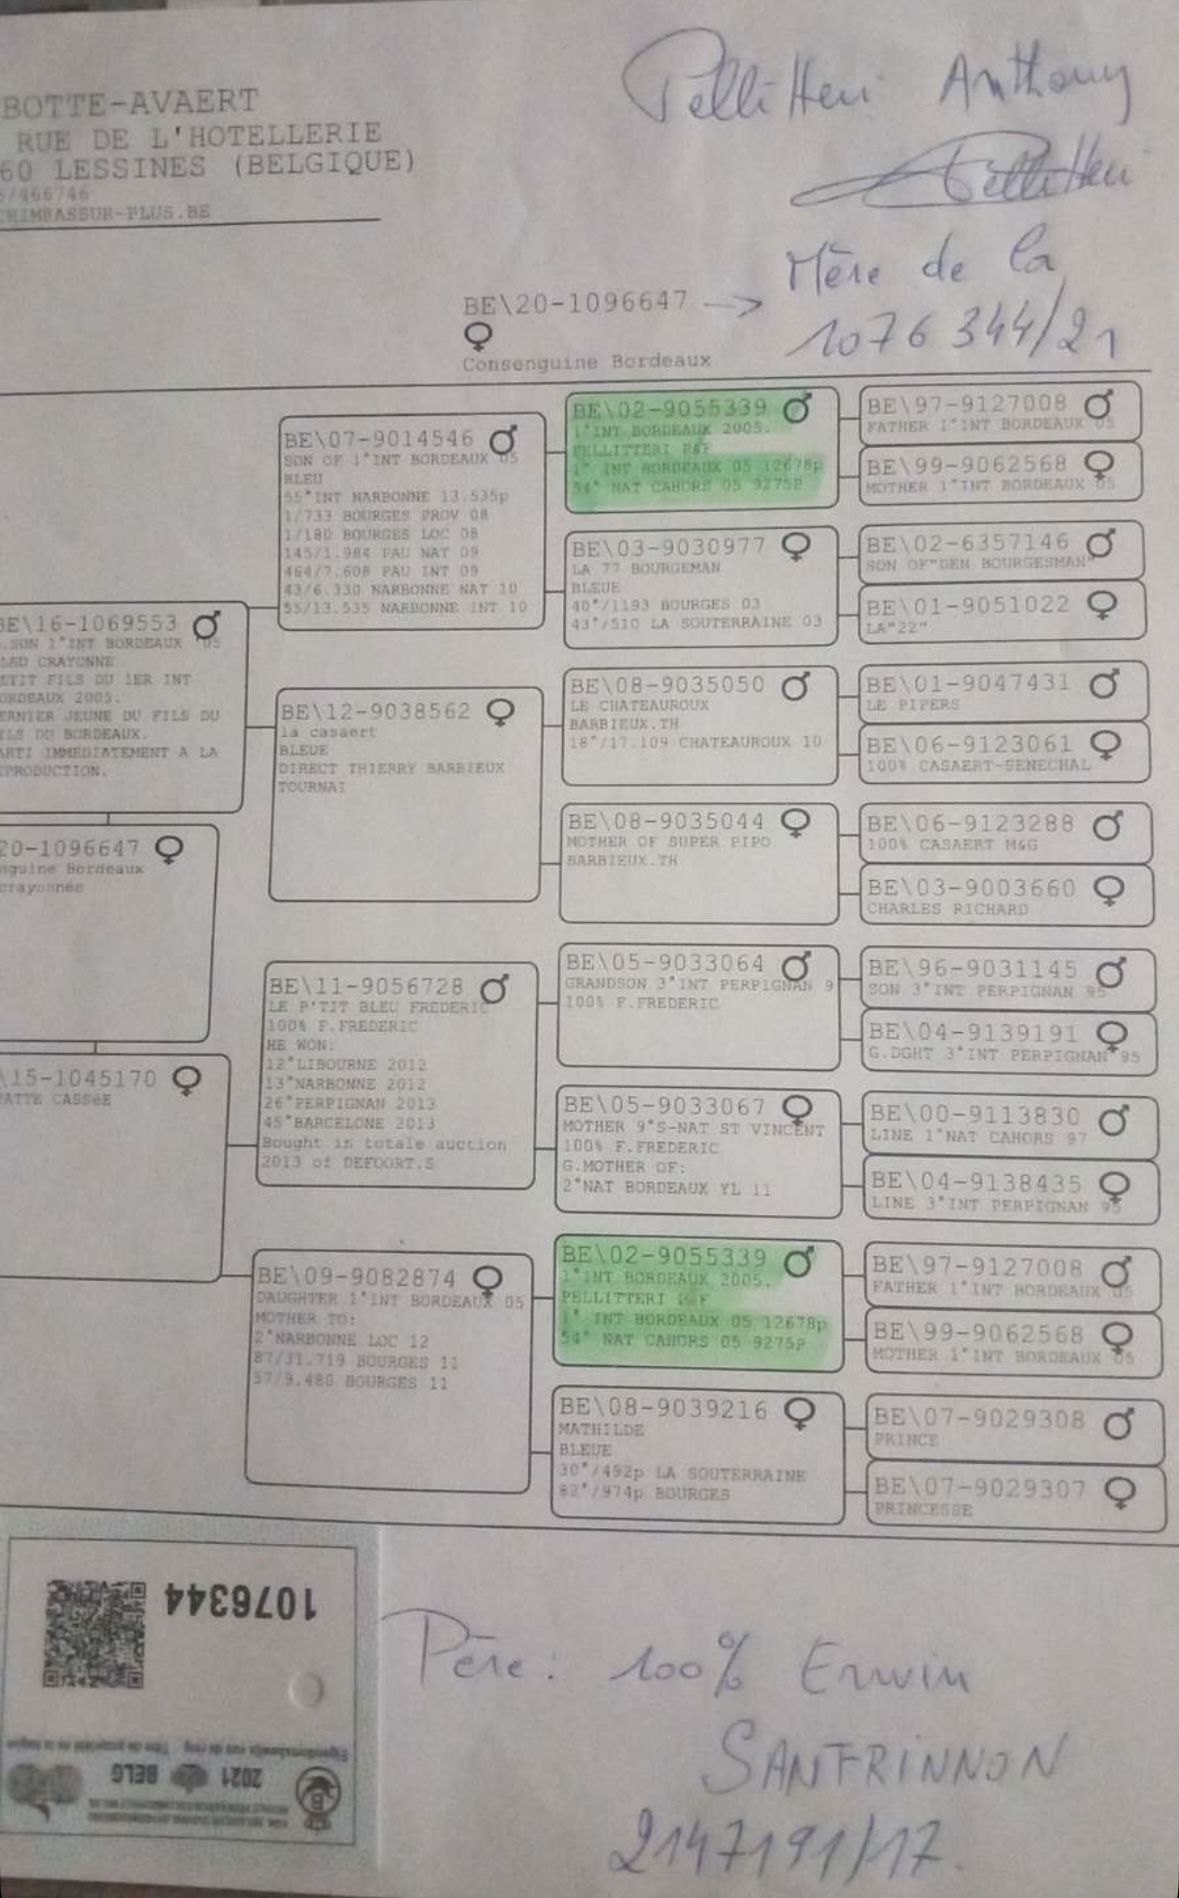 BOTTE-AVAERT
RUE DE L'HOTELLERIE
60 LESSINES (BELGIQUE)
/466746
CHIMBASSUR-PLUS.BE
Pellitteri Anthony
Pellitteri
Mère de la
1076344/21
BE\20-1096647 →
♀
Consenguine Bordeaux
BE\16-1069553 ♂
.SON 1°INT BORDEAUX 05
LEU CRAYONNE
ETIT FILS DU 1ER INT
ORDEAUX 2005.
ERNIER JEUNE DU FILS DU
ILS DU BORDEAUX.
ARTI IMMEDIATEMENT A LA
EPRODUCTION.
20-1096647 ♀
nguine Bordeaux
crayonnée
\15-1045170 ♀
PATTE CASSéE
BE\07-9014546 ♂
SON OF 1°INT BORDEAUX 05
BLEU
55°INT NARBONNE 13.535p
1/733 BOURGES PROV 08
1/180 BOURGES LOC 08
145/1.984 PAU NAT 09
464/7.608 PAU INT 09
43/6.330 NARBONNE NAT 10
55/13.535 NARBONNE INT 10
BE\12-9038562 ♀
la casaert
BLEUE
DIRECT THIERRY BARBIEUX
TOURNAI
BE\11-9056728 ♂
LE P'TIT BLEU FREDERIC
100% F.FREDERIC
HE WON:
12°LIBOURNE 2012
13°NARBONNE 2012
26°PERPIGNAN 2013
45°BARCELONE 2013
Bought in totale auction
2013 of DEFOORT.S
BE\09-9082874 ♀
DAUGHTER 1°INT BORDEAUX 05
MOTHER TO:
2°NARBONNE LOC 12
87/31.719 BOURGES 11
57/9.480 BOURGES 11
BE\02-9055339 ♂
1°INT BORDEAUX 2005.
PELLITTERI P&F
1° INT BORDEAUX 05 12678p
54° NAT CAHORS 05 9275P
BE\03-9030977 ♀
LA 77 BOURGEMAN
BLEUE
40°/1193 BOURGES 03
43°/510 LA SOUTERRAINE 03
BE\08-9035050 ♂
LE CHATEAUROUX
BARBIEUX.TH
18°/17.109 CHATEAUROUX 10
BE\08-9035044 ♀
MOTHER OF SUPER PIPO
BARBIEUX.TH
BE\05-9033064 ♂
GRANDSON 3°INT PERPIGNAN 9
100% F.FREDERIC
BE\05-9033067 ♀
MOTHER 9°S-NAT ST VINCENT
100% F.FREDERIC
G.MOTHER OF:
2°NAT BORDEAUX YL 11
BE\02-9055339 ♂
1°INT BORDEAUX 2005.
PELLITTERI P&F
1° INT BORDEAUX 05 12678p
54° NAT CAHORS 05 9275P
BE\08-9039216 ♀
MATHILDE
BLEUE
30°/492p LA SOUTERRAINE
82°/974p BOURGES
BE\97-9127008 ♂
FATHER 1°INT BORDEAUX 05
BE\99-9062568 ♀
MOTHER 1°INT BORDEAUX 05
BE\02-6357146 ♂
SON OF"DEN BOURGESMAN"
BE\01-9051022 ♀
LA"22"
BE\01-9047431 ♂
LE PIPERS
BE\06-9123061 ♀
100% CASAERT-SENECHAL
BE\06-9123288 ♂
100% CASAERT M&G
BE\03-9003660 ♀
CHARLES RICHARD
BE\96-9031145 ♂
SON 3°INT PERPIGNAN 95
BE\04-9139191 ♀
G.DGHT 3°INT PERPIGNAN 95
BE\00-9113830 ♂
LINE 1°NAT CAHORS 97
BE\04-9138435 ♀
LINE 3°INT PERPIGNAN 95
BE\97-9127008 ♂
FATHER 1°INT BORDEAUX 05
BE\99-9062568 ♀
MOTHER 1°INT BORDEAUX 05
BE\07-9029308 ♂
PRINCE
BE\07-9029307 ♀
PRINCESSE
1076344
Eigendomsbewijs van de ring Titre de propriété de la bague
2021 BELG
Père: 100% Erwin
SANTRINNON
2147191/17.